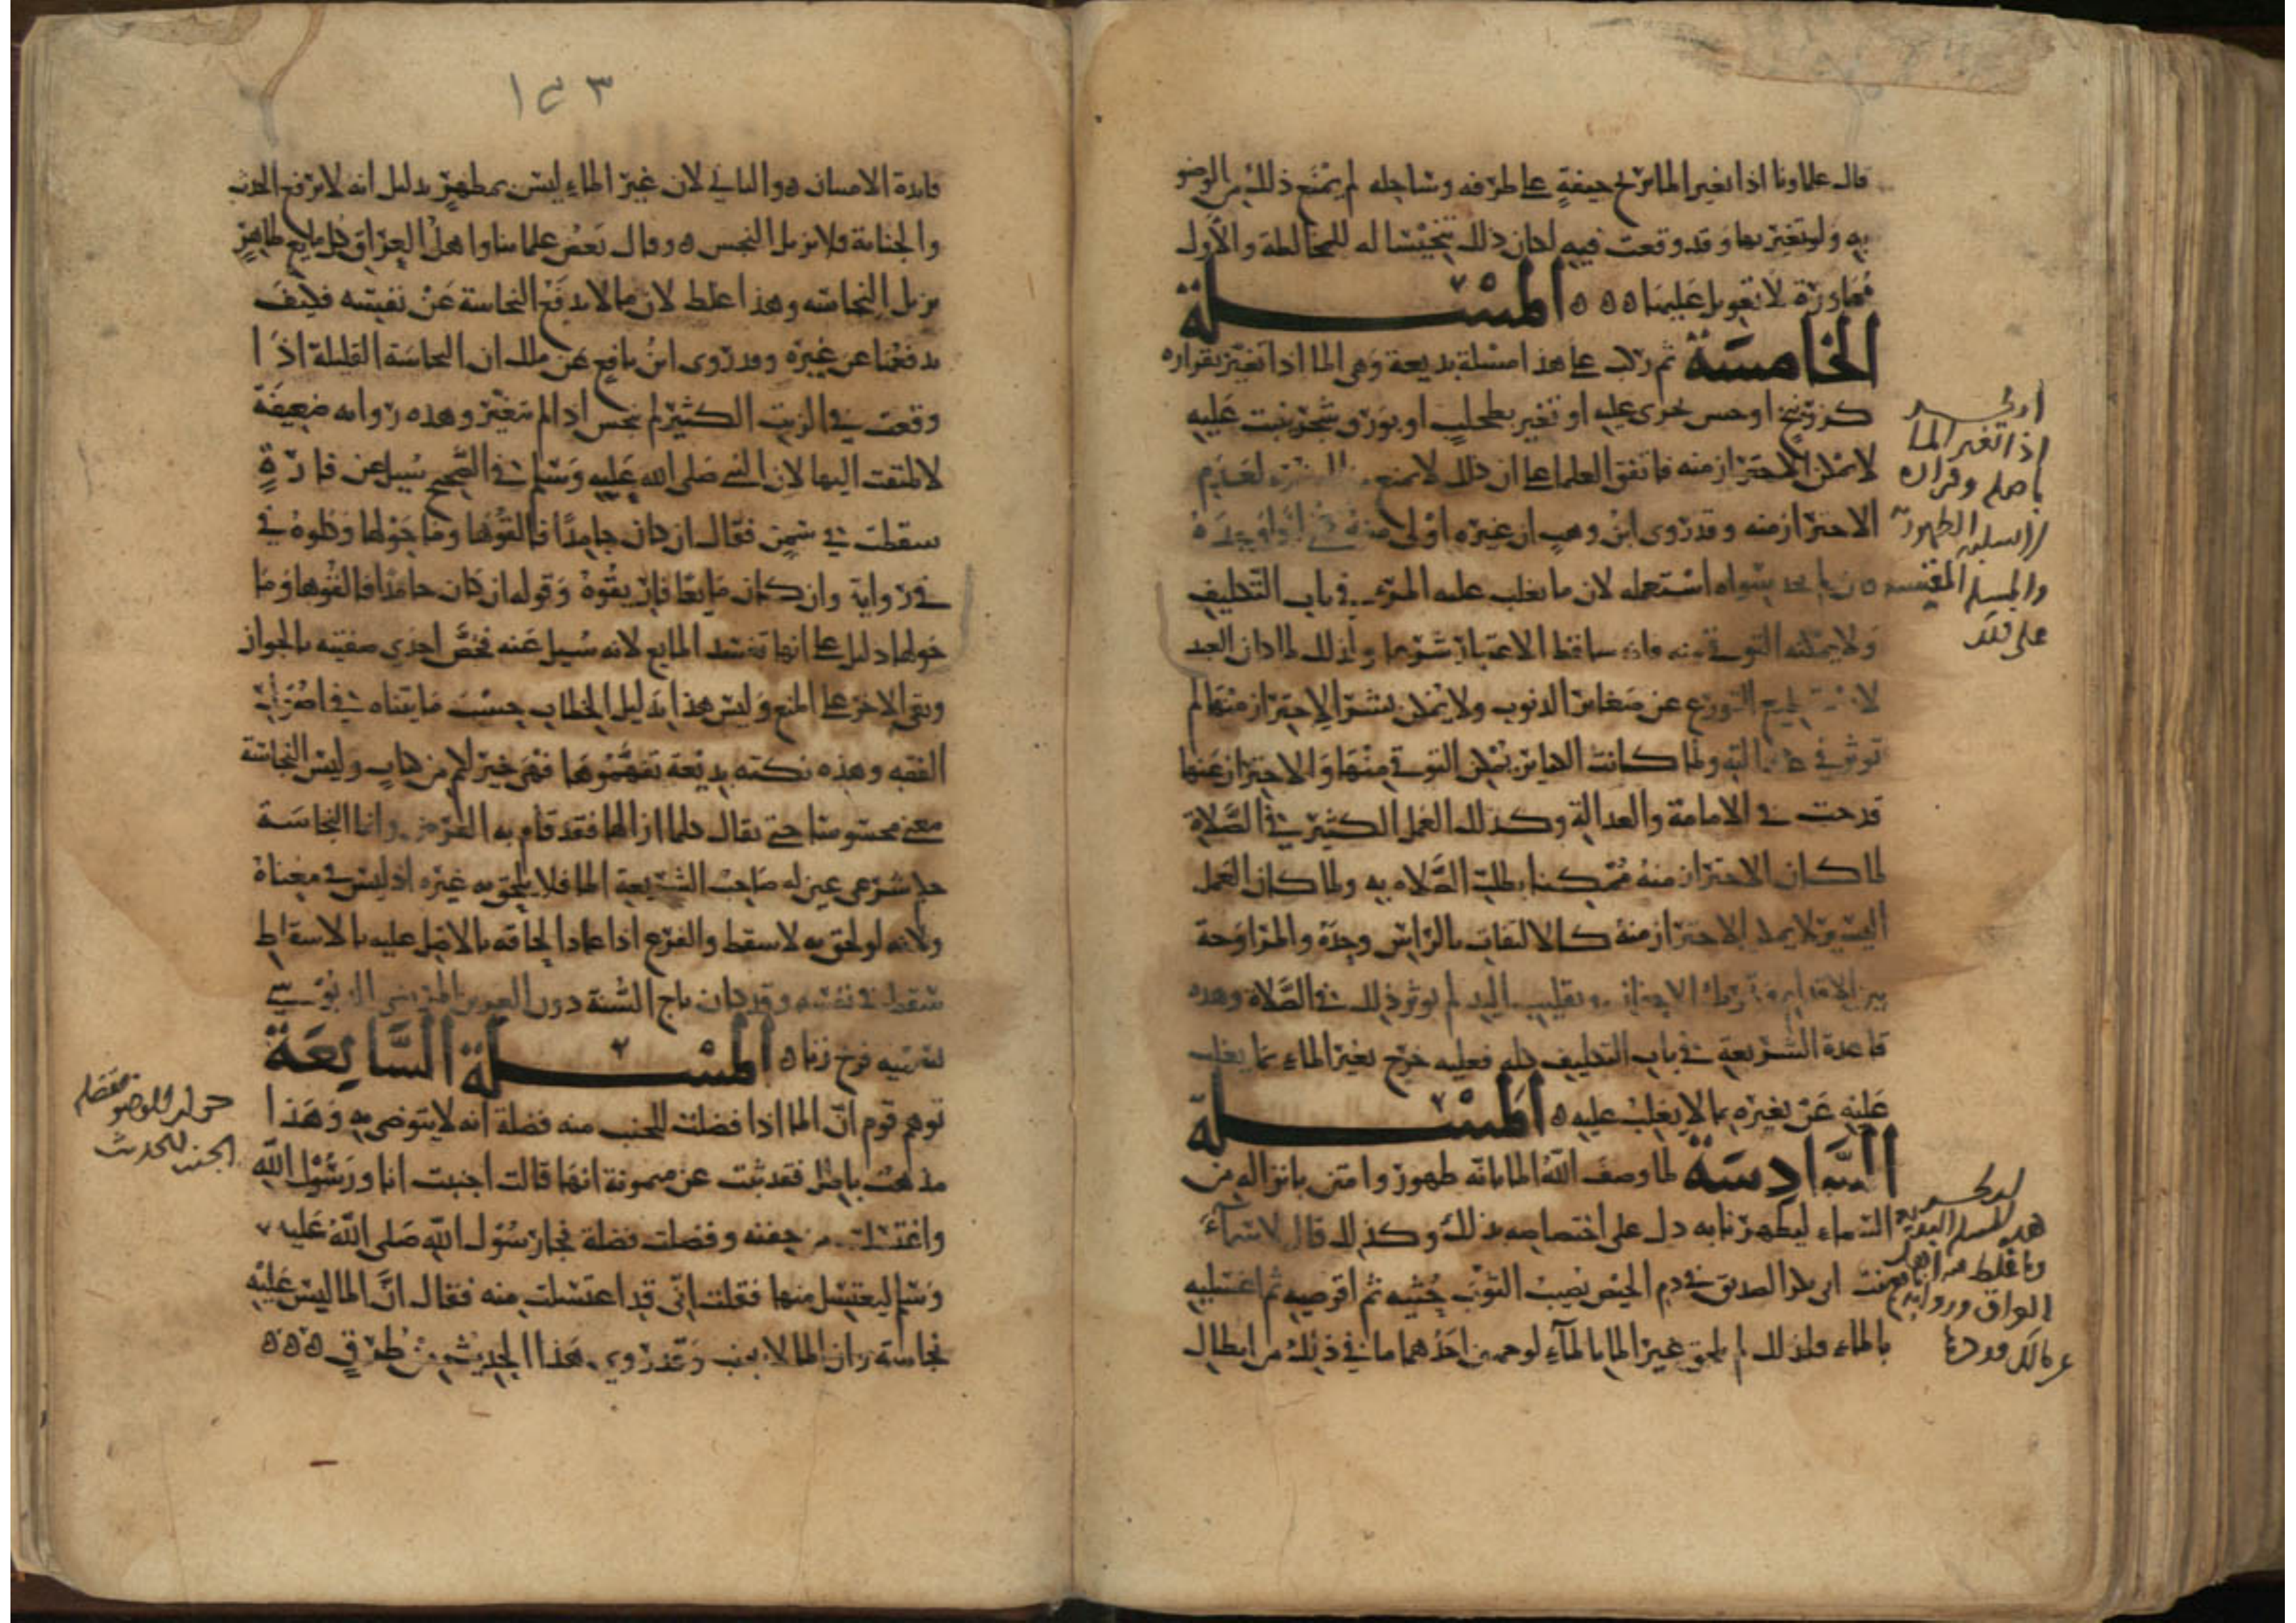 قال علماونا اذا تغير الما بريح جيفة على طرفه وساحله لم يمنع ذلك من الوضو
به ولو تغير بها وقد وقعت فيه لكان ذلك تنجيسا له للمخالطة والأول
مجاورة لا تعويل عليها ه ه ه المسئلة
الخامسة ثم ركب على هذا مسئلة بديعة وهى الما اذا تغير بقراره
كزرنيخ او جص يجرى عليه او تغير بطحلب او بورق شجر نبت عليه
لا يمكن الاحتراز منه فاتفق العلما على ان ذلك لا يمنع لعدم
الاحتراز منه وقد روى ابن وهب ان غيره اولى منه
يجد سواه استعمله لان ما يغلب عليه المرء في باب التكليف
ولا يمكنه التوقى منه فانه ساقط الاعتبار شرعا ولذلك لما كان العبد
لا يستطيع التورع عن صغائر الذنوب ولا يمكن بشر الاحتراز منها لم
توثر في عدالته ولما كانت الكبائر يمكن التوقي منها والاحتراز عنها
قدحت في الامامة والعدالة وكذلك العمل الكثير في الصلاة
لما كان الاحتراز منه ممكنا بطلت الصلاه به ولما كان العمل
اليسير لا يمكن الاحتراز منه كالالتفات بالراس وحده والمراوحة
بين الاقدام وتحريك الاجفان وتقليب اليد لم يوثر ذلك في الصلاة وهذه
قاعدة الشريعة في باب التكليف كله فعليه خرج تغير الماء بما يغلب
عليه عن تغيره بما لا يغلب عليه ه المسئلة
السادسة لما وصف الله الما بانه طهور وامتن بانزاله من
السماء ليطهرنا به دل على اختصاصه بذلك وكذلك قال لاسماء
بنت ابى بكر الصديق في دم الحيض يصيب الثوب حتيه ثم اقرصيه ثم اغسليه
بالماء ولذلك لم يلحق غير الما بالماء لوجهين احدهما ما في ذلك من ابطال
اذا تغير الما
باصله وقراره
على ذلك
هذه المسلة البديعة
١٥٣
فايدة الامتنان ه والثاني لان غير الماء ليس بمطهر بدليل انه لا يرفع الحدث
والجنابة فلا يزيل النجس ه وقال بعض علماينا واهل العراق كل مايع طاهر
يزيل النجاسه وهذا غلط لان ما لا يدفع النجاسة عن نفسه فكيف
يدفعها عن غيره وقد روى ابن نافع عن ملك ان النجاسة القليلة اذا
وقعت في الزيت الكثير لم ينجس اذا لم يتغير وهذه روايه ضعيفة
لا يلتفت اليها لان النبي صلى الله عليه وسلم في الصحيح سيل عن فارة
سقطت في سمن فقال ان كان جامدا فالقوها وما حولها وكلوه في
في رواية وان كان مايعا فاريقوه وقوله ان كان جامدا فالقوها وما
حولها دليل على انها تفسد المايع لانه سيل عنه فخص احدى صفتيه بالجواز
وبقى الاخر على المنع وليس هذا بدليل الخطاب حسب ما بيناه في اصول
الفقه وهذه نكته بديعة تفهموها فهى خير لكم من كتاب وليس النجاسة
معنى محسوسا حتى يقال كلما ازالها فقد قام به الغرض وانما النجاسة
حكم شرعى عين له صاحب الشريعة الما فلا يلحق به غيره اذ ليس في معناه
ولانه لو لحق به لاسقط والفرع اذا عاد الحاقه بالاصل عليه بالاسقاط
سقط في نفسه وقد كان تاج السنة
يسميه فرخ زنا ه المسئلة السابعة
توهم قوم ان الما اذا فضلت للجنب منه فضلة انه لا يتوضى به وهذا
مذهب باطل فقد ثبت عن ميمونة انها قالت اجنبت انا ورسول الله
واغتسلت من جفنه وفضلت فضلة فجا رسول الله صلى الله عليه
وسلم ليغتسل منها فقلت انى قد اغتسلت منه فقال ان الما ليس عليه
نجاسة وان الما لا يجنب وقد روي هذا الحديث من طرق ه ه ه
الجنب للحدث